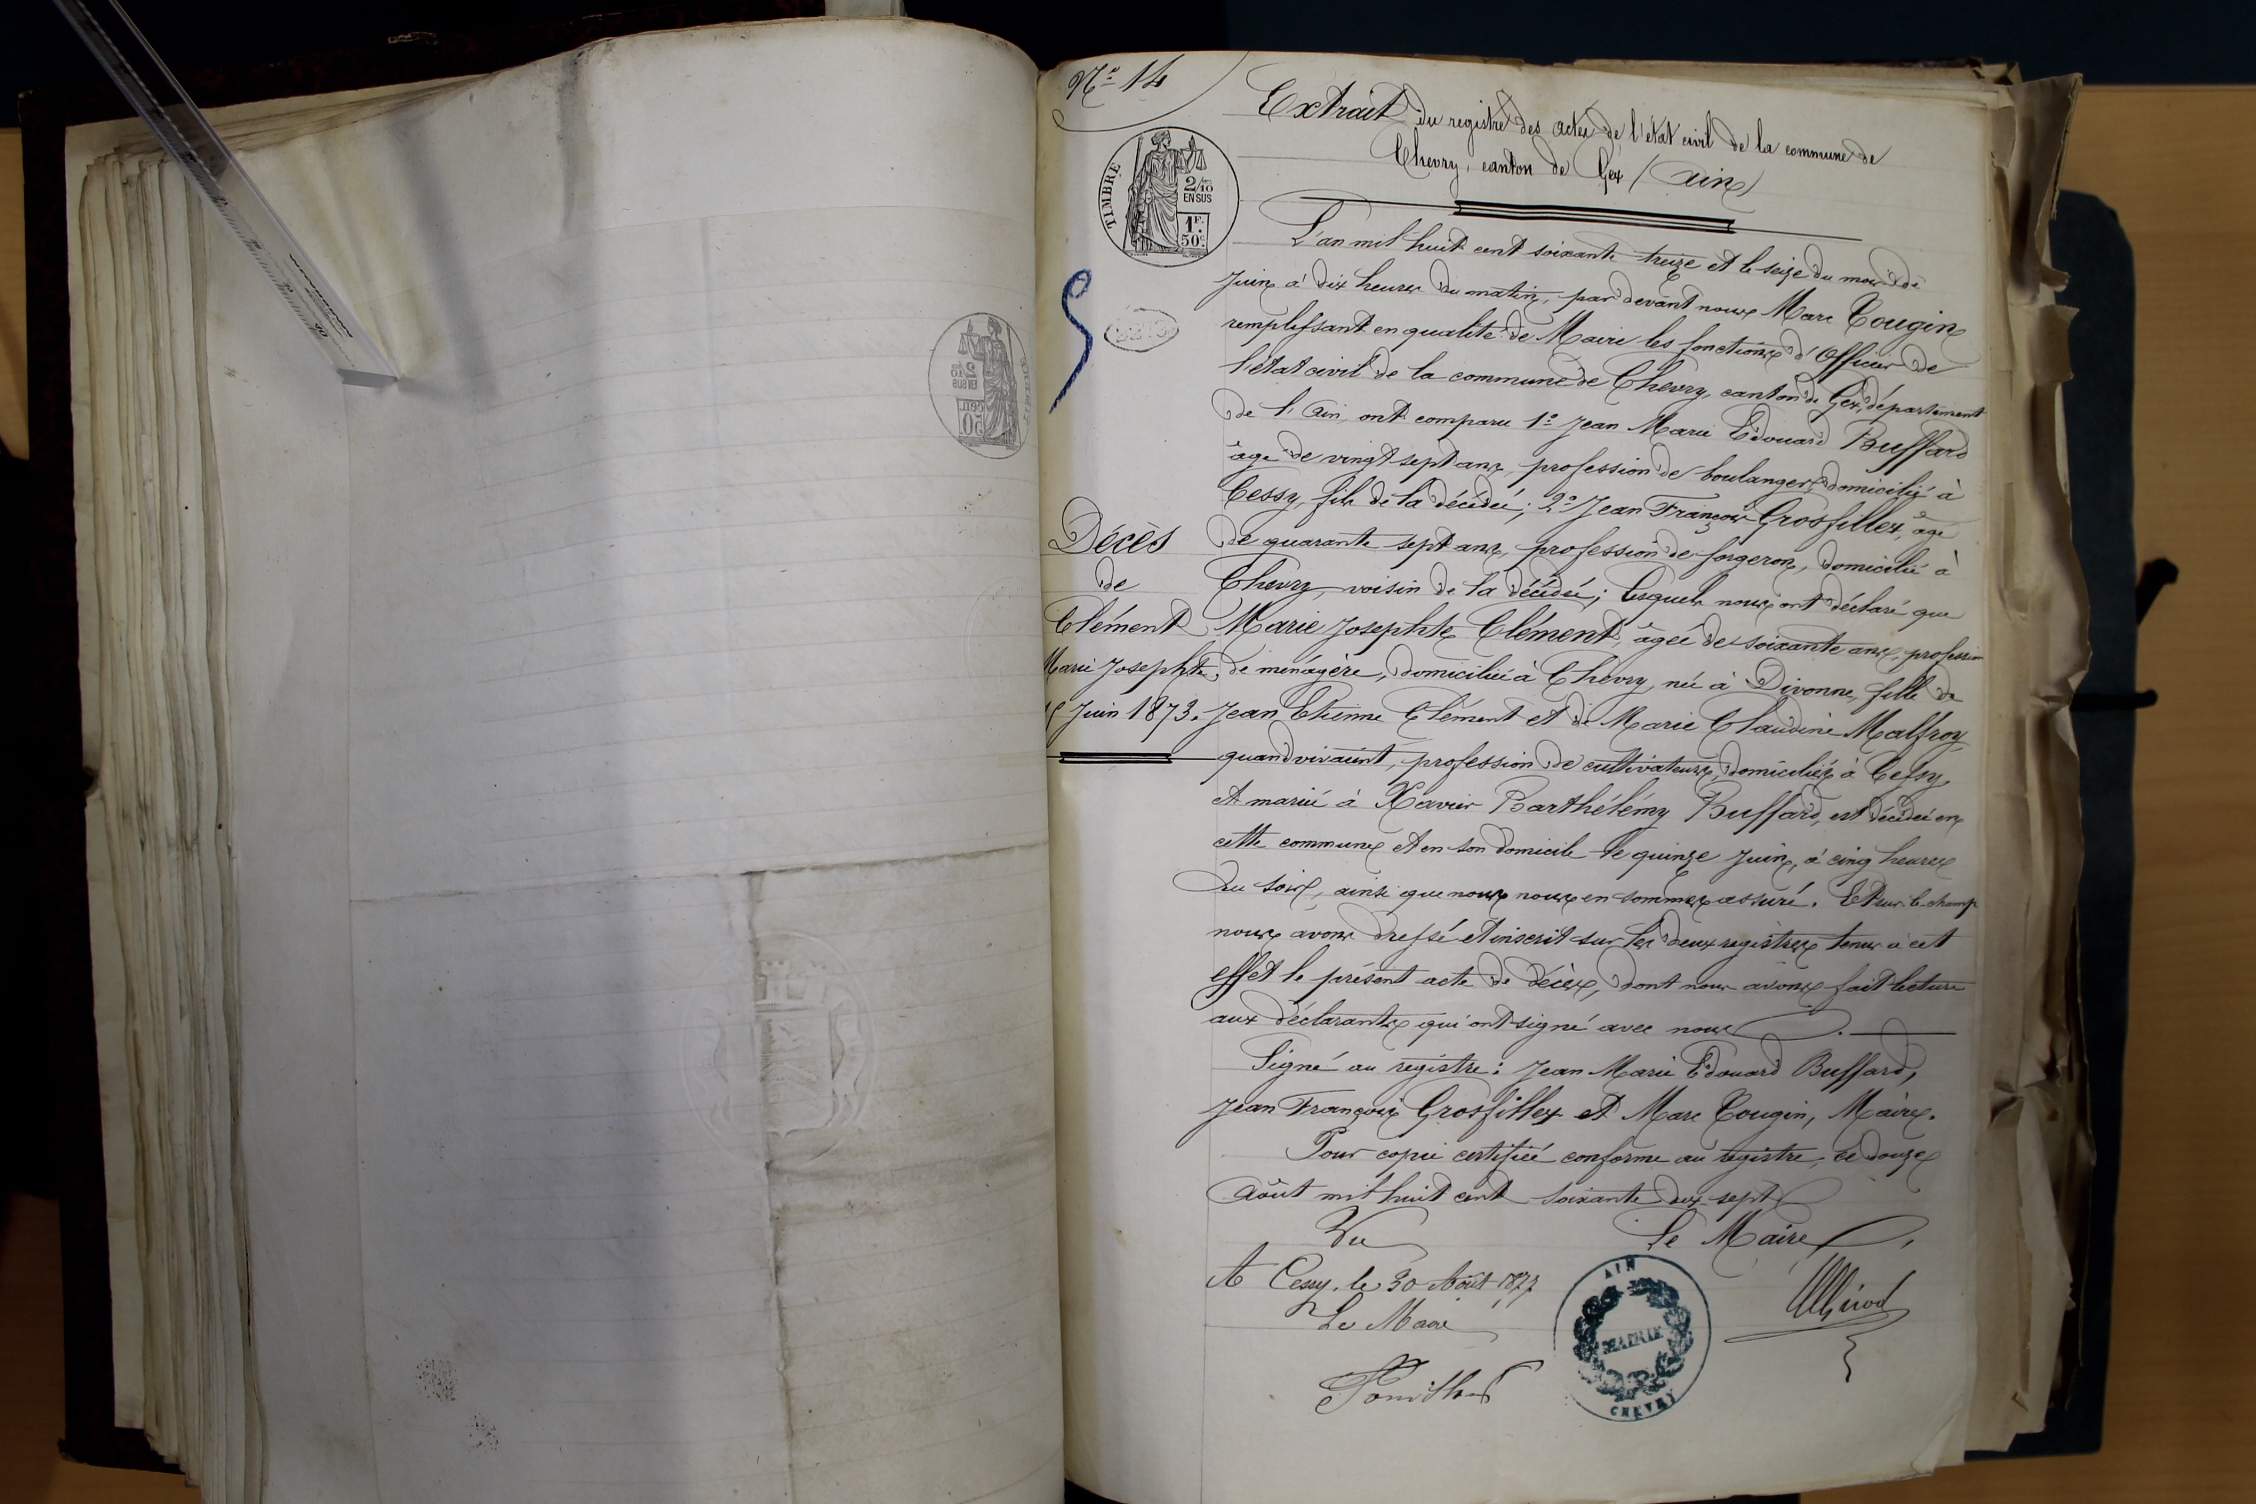 N° 14
Extrait du registre des actes de l'état civil de la commune de
Chevry, canton de Gex (Ain)
TIMBRE
2/10
EN SUS
1F.
50c.
L'an mil huit cent soixante treize et le seize du mois de
Juin à dix heures du matin, par devant nous Marc Tougin
remplissant en qualité de Maire les fonctions d'Officier de
l'état civil de la commune de Chevry, canton de Gex, département
de l'Ain, ont comparu 1° Jean Marie Edouard Buffard
âgé de vingt sept ans, profession de boulanger, domicilié à
Cessy, fils de la décédée; 2° Jean François Grosfilley, âgé
de quarante sept ans, profession de forgeron, domicilié à
Chevry, voisin de la décédée; lesquels nous ont déclaré que
Marie Josephte Clément, âgée de soixante ans, profession
de ménagère, domiciliée à Chevry, née à Divonne, fille de
Jean Etienne Clément et de Marie Claudine Malfroy
quand vivaient, profession de cultivateurs, domiciliés à Cessy,
et mariée à Xavier Barthélémy Buffard, est décédée en
cette commune et en son domicile le quinze Juin, à cinq heures
du soir, ainsi que nous nous en sommes assuré. Et sur-le-champ
nous avons dressé et inscrit sur les deux registres tenus à cet
effet le présent acte de décès, dont nous avons fait lecture
aux déclarants qui ont signé avec nous.
Signé au registre: Jean Marie Edouard Buffard,
Jean François Grosfilley et Marc Tougin, Maire.
Pour copie certifiée conforme au registre, ce douze
Août mil huit cent soixante dix-sept
Décès
de
Clément
Marie Josephte,
15 Juin 1873.
Vu
A Cessy, le 30 Août 1877
Le Maire
Le Maire,
AIN
MAIRIE
CHEVRY
2/10
EN SUS
50